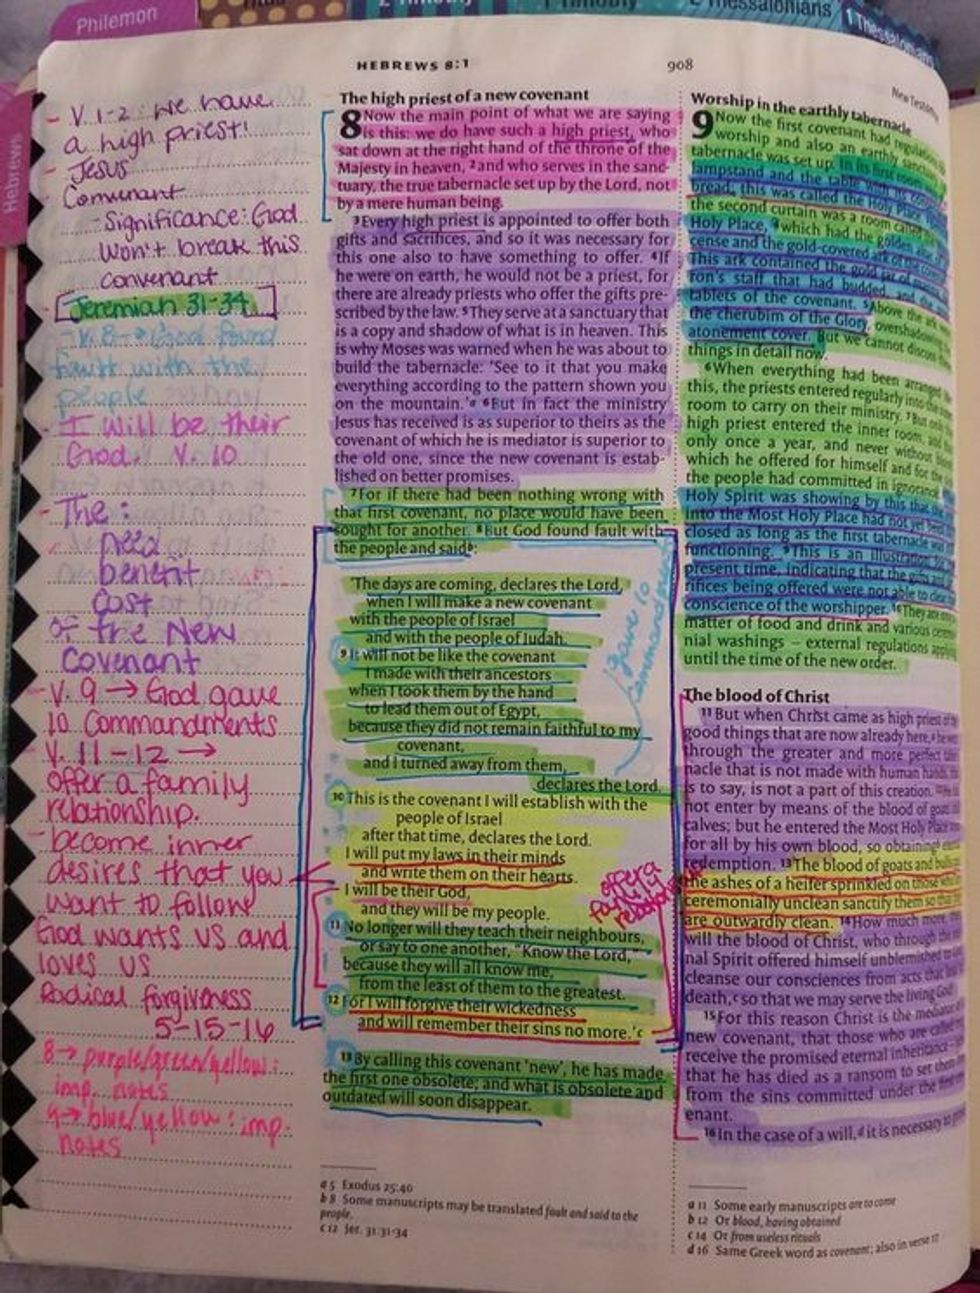 Philemon
Titus
2 Timothy
1 Timothy
2 Thessalonians
1 Thessalonians
Hebrews
HEBREWS 8:1
908
- V. 1-2: we have
a high priest!
- Jesus
- Convenant
- Significance: God
Won't break this
convenant
Jeremiah 31-34
- V. 8 → God found
fault with the
people
- I will be their
God. V. 10
- The:
need
benefit
Cost
of the New
Covenant
- V. 9 → God gave
10 Commandments
- V. 11-12 →
offer a family
relationship.
- become inner
desires that you
want to follow
God wants us and
loves us
Radical forgiveness
5-15-16
8 → purple/green/yellow:
imp. notes
9 → blue/yellow: imp.
notes
The high priest of a new covenant
8 Now the main point of what we are saying
is this: we do have such a high priest, who
sat down at the right hand of the throne of the
Majesty in heaven, 2 and who serves in the sanc-
tuary, the true tabernacle set up by the Lord, not
by a mere human being.
3 Every high priest is appointed to offer both
gifts and sacrifices, and so it was necessary for
this one also to have something to offer. 4 If
he were on earth, he would not be a priest, for
there are already priests who offer the gifts pre-
scribed by the law. 5 They serve at a sanctuary that
is a copy and shadow of what is in heaven. This
is why Moses was warned when he was about to
build the tabernacle: 'See to it that you make
everything according to the pattern shown you
on the mountain.'a 6 But in fact the ministry
Jesus has received is as superior to theirs as the
covenant of which he is mediator is superior to
the old one, since the new covenant is estab-
lished on better promises.
7 For if there had been nothing wrong with
that first covenant, no place would have been
sought for another. 8 But God found fault with
the people and said b:
'The days are coming, declares the Lord,
when I will make a new covenant
with the people of Israel
and with the people of Judah.
9 It will not be like the covenant
I made with their ancestors
when I took them by the hand
to lead them out of Egypt,
because they did not remain faithful to my
covenant,
and I turned away from them,
declares the Lord.
10 This is the covenant I will establish with the
people of Israel
after that time, declares the Lord.
I will put my laws in their minds
and write them on their hearts.
I will be their God,
and they will be my people.
11 No longer will they teach their neighbours,
or say to one another, "Know the Lord,"
because they will all know me,
from the least of them to the greatest.
12 For I will forgive their wickedness
and will remember their sins no more.'c
13 By calling this covenant 'new', he has made
the first one obsolete; and what is obsolete and
outdated will soon disappear.
gave 10
commandments
offer a
family
relationship
a 5 Exodus 25:40
b 8 Some manuscripts may be translated fault and said to the
people.
c 12 Jer. 31:31-34
Worship in the earthly tabernacle
9 Now the first covenant had
worship and also an earthly
tabernacle was set up. In its first room
lampstand and the table with its
bread; this was called the Holy Place.
the second curtain was a room called the
Holy Place, 4 which had the golden altar of
cense and the gold-covered ark of the
This ark contained the gold jar of
ron's staff that had budded, and the
tablets of the covenant. 5 Above the ark
the cherubim of the Glory, overshadowing
atonement cover. But we cannot discuss
things in detail now.
6 When everything had been arranged
this, the priests entered regularly into the
room to carry on their ministry. 7 But only
high priest entered the inner room, and
only once a year, and never without
which he offered for himself and for the
the people had committed in ignorance.
Holy Spirit was showing by this that the
into the Most Holy Place had not yet been
closed as long as the first tabernacle was
functioning. 9 This is an illustration
present time, indicating that the gifts and
rifices being offered were not able to clear
conscience of the worshipper. 10 They are
matter of food and drink and various
nial washings – external regulations applying
until the time of the new order.
The blood of Christ
11 But when Christ came as high priest of the
good things that are now already here,a he
through the greater and more perfect
nacle that is not made with human hands,
is to say, is not a part of this creation. 12 He
not enter by means of the blood of goats
calves; but he entered the Most Holy Place
for all by his own blood, so obtaining
redemption. 13 The blood of goats and
the ashes of a heifer sprinkled on those
ceremonially unclean sanctify them so that
are outwardly clean. 14 How much more,
will the blood of Christ, who through the
nal Spirit offered himself unblemished to
cleanse our consciences from acts that
death,c so that we may serve the living God!
15 For this reason Christ is the mediator of
new covenant, that those who are called
receive the promised eternal inheritance –
that he has died as a ransom to set them
from the sins committed under the first
enant.
16 In the case of a will,d it is necessary to
a 11 Some early manuscripts are to come
b 12 Or blood, having obtained
c 14 Or from useless rituals
d 16 Same Greek word as covenant; also in verse 17